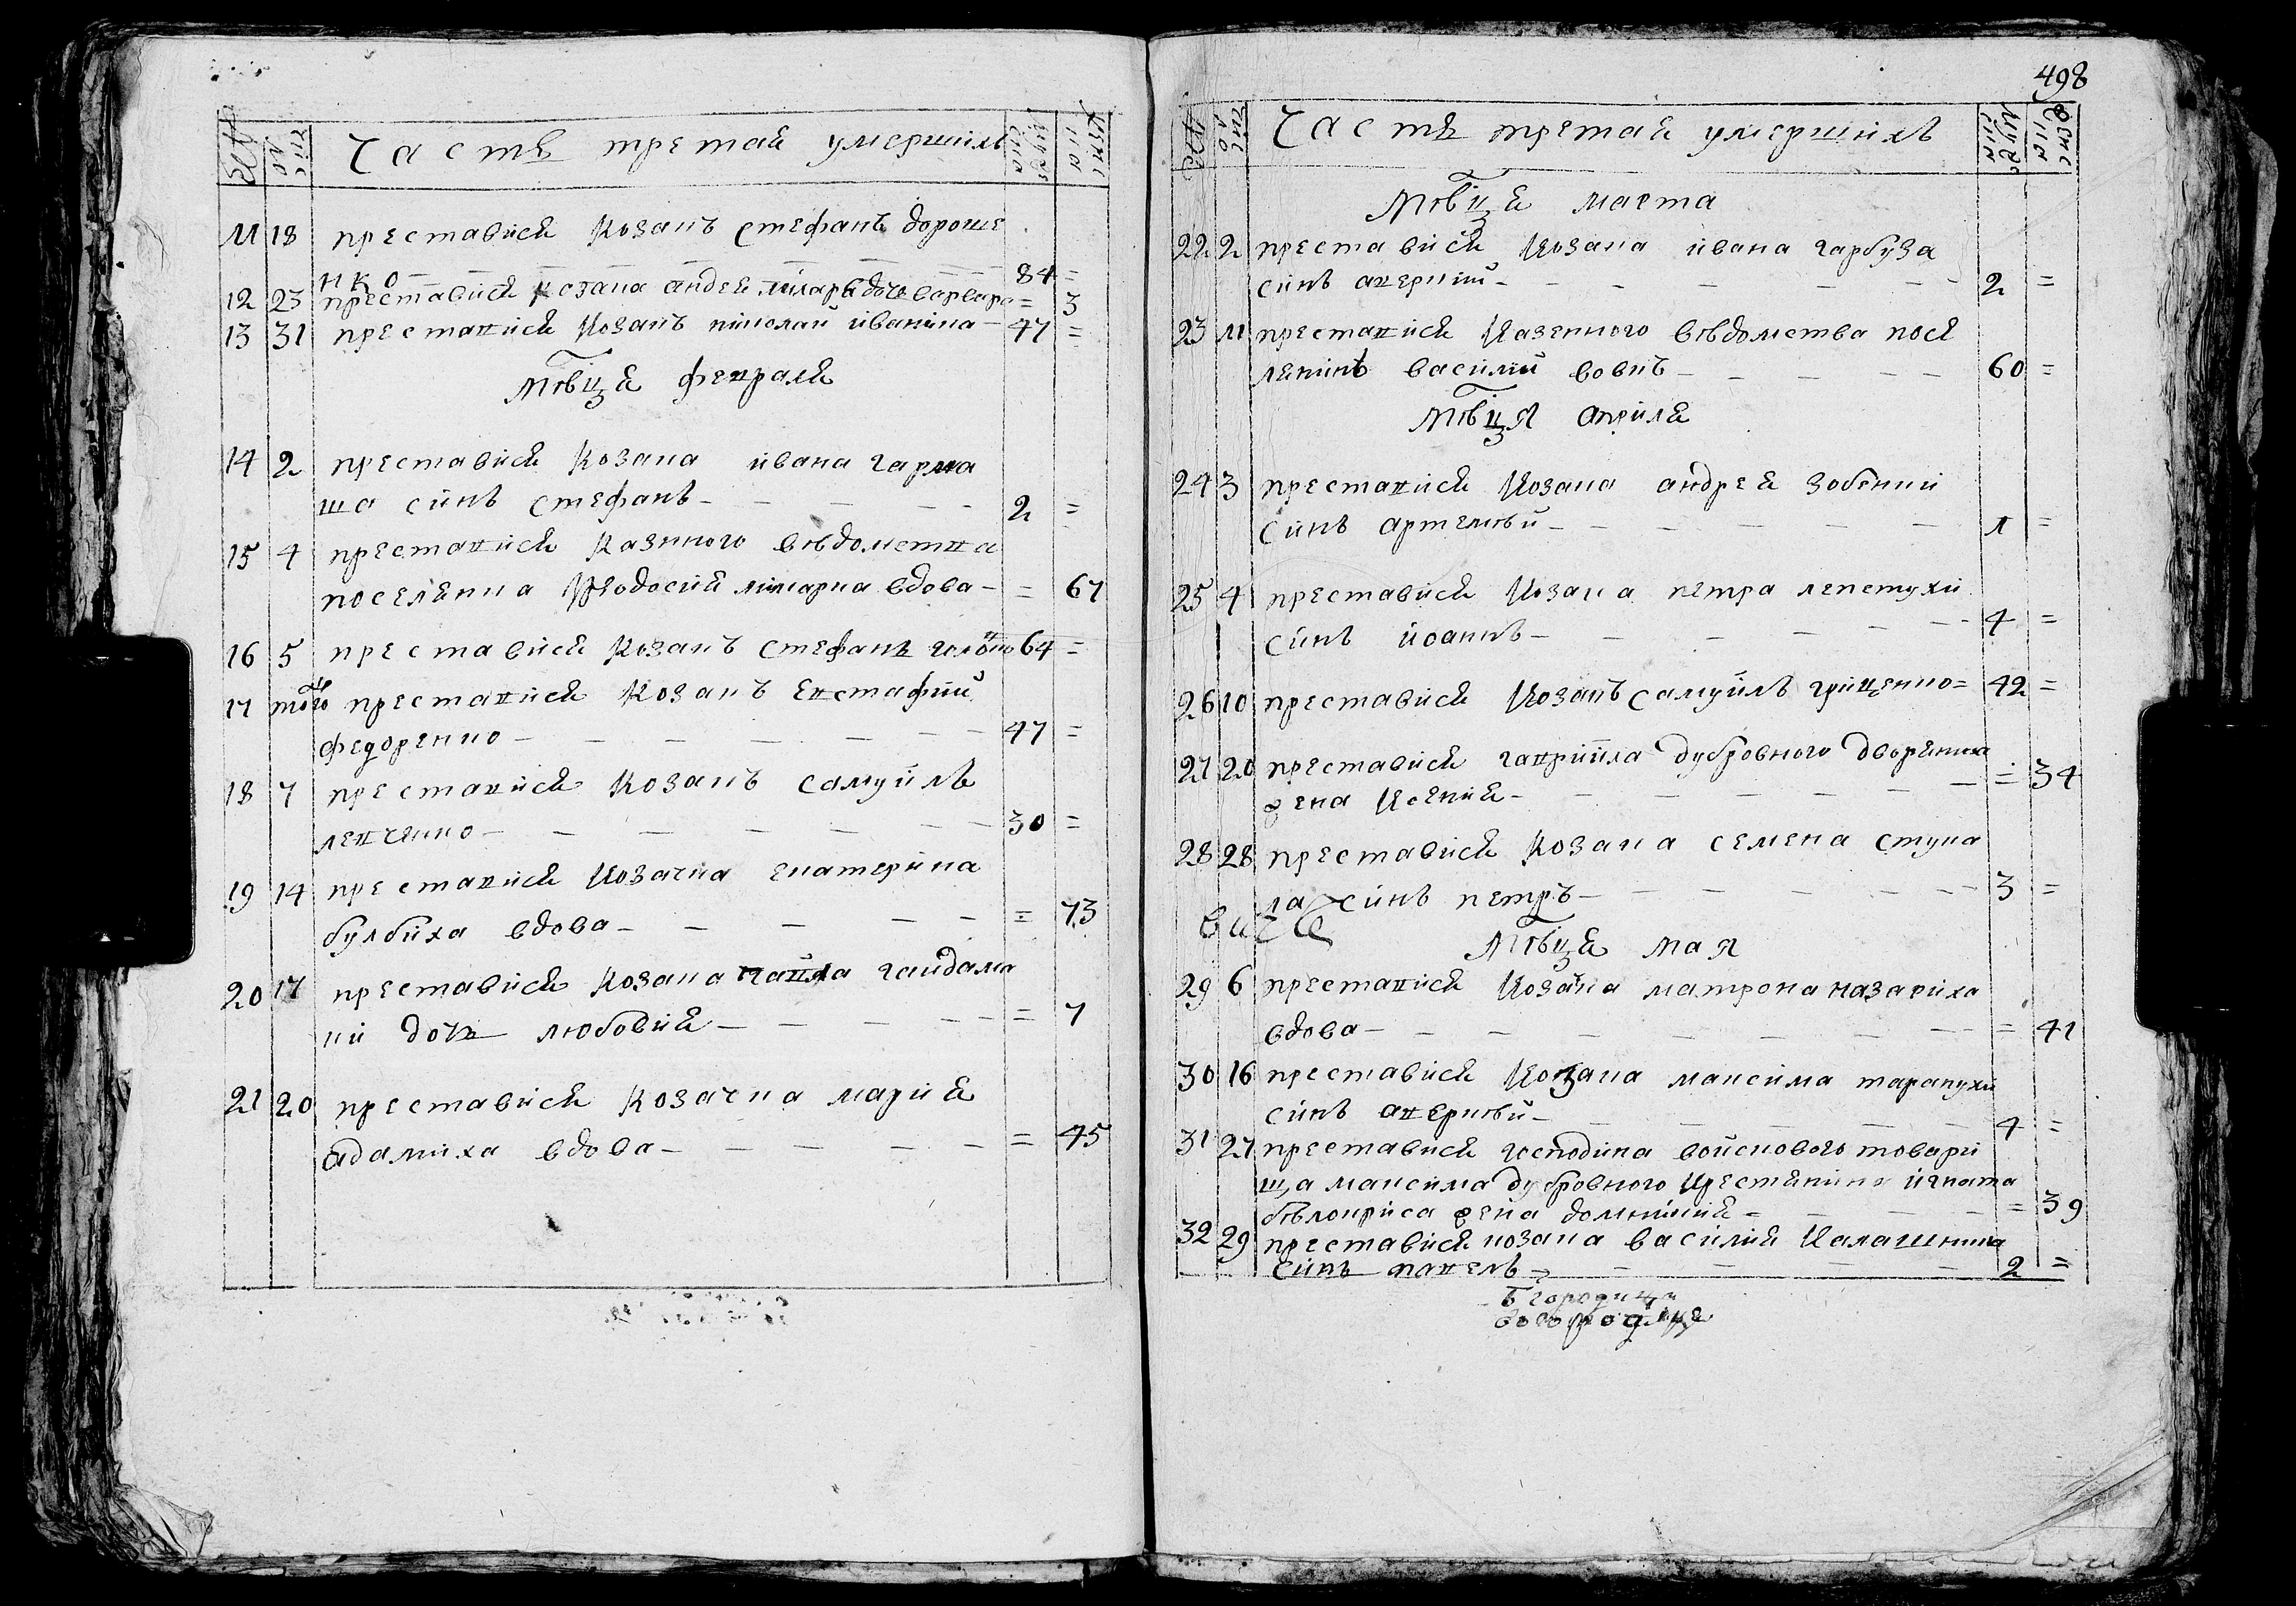 Часть третая умершихъ
11 18 преставися козакъ стефанъ дороше
нко 84 =
12 23 преставися козака андрея дочь варвара = 3
13 31 преставися козакъ николай иваника 47 =
Мѣцѧ февраля
14 2 преставися козака ивана гарма
ша синъ стефанъ 2 =
15 4 преставися казного вѣдомства
поселянка феодосия вдова = 67
16 5 преставися козакъ стефанъ 64 =
17 того преставися козакъ евстафий
федоренко 47 =
18 7 преставися козакъ самуилъ
левченко 30 =
19 14 преставися козачка екатерина
булбиха вдова = 73
20 17 преставися козака гайдама
ки дочь любовия = 7
21 20 преставися козачка мария
адамиха вдова = 45
498
Часть третая умершихъ
Мѣцѧ марта
22 2 преставися козака ивана гарбуза
синъ аверкий 2 =
23 11 преставися казенного вѣдомства посе
лянинъ василий вовкъ 60 =
Мѣцѧ априля
24 3 преставися козака андрея
синъ артемѣй 1 =
25 4 преставися козака петра лепетухи
синъ иоаннъ 4 =
26 10 преставися козакъ самуилъ грищенко = 42 =
27 20 преставися гавриила дубровного дворянина
жена ксения = 34
28 28 преставися козака семена ступа
ла синъ петръ 3 =
Мѣцѧ мая
29 6 преставися козачка матрона назариха
вдова = 41
30 16 преставися козака максима тарапухи
синъ аверкѣй 4 =
31 27 преставися господина войскового товари
ща максима дубровного крестянина игната
бѣлокриса жена домникия = 39
32 29 преставися козака василия калашника
синъ павелъ 2 =